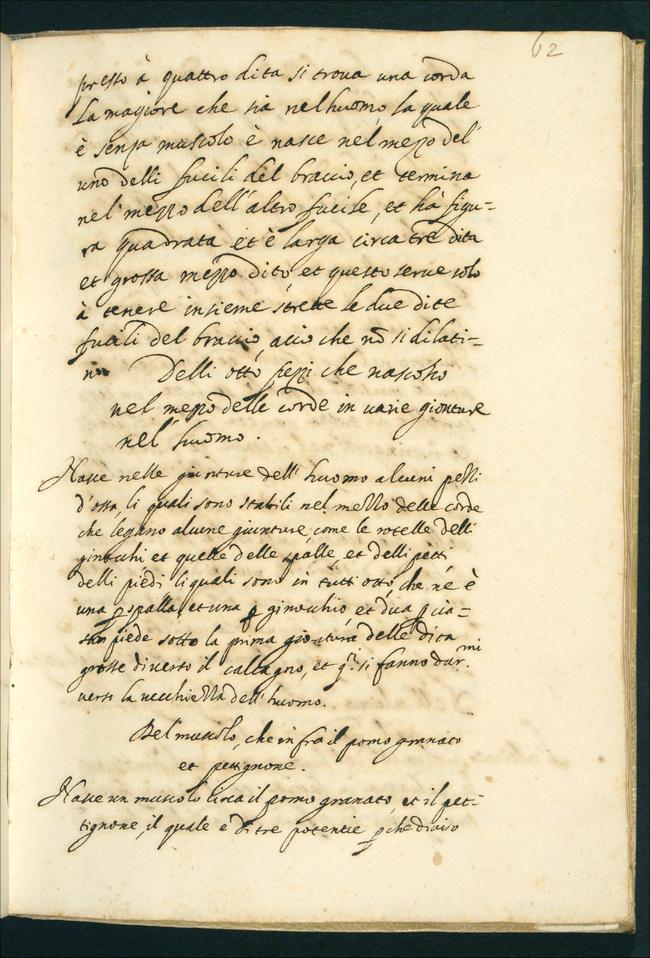 62
presto à quattro dita si troua una corda
la magiore che sia nel huomo, la quale
è senza muscolo è nasce nel mezzo del'
uno delli fucili del braccio, et termina
nel mezzo dell'altro fucile, et hà figu-
ra quadrata et è larga circa tre dita
et grossa mezzo dito et questo serue solo
à tenere insieme strette le due dite
fucili del braccio, acciò che nõ si dilati-
no. Delli otto pezzi che nascosto
nel mezzo delle corde in uarie gionture
nel huomo.
Nasce nelle giunture dell'huomo alcuni pezzi
d'ossa, li quali sono stabili nel mezzo delle corde
che legano alcune giunture, come le rotelle delli
ginocchi et quelle delle spalle, et delli petti
delli piedi li quali sono in tutti otto, che né è
una p spalla, et una p ginocchio, et dua p cia-
scun piede sotto la prima giontura delle dita
grosse di uerso il calcagno, et q.ti si fanno dur.mi
uerso la uecchiezza dell'huomo.
Del muscolo, che in fra il pomo granato
et pettignone.
Nasce un muscolo circa il pomo granato, et il pet-
tignone, il quale è di tre potentie p che diuiso